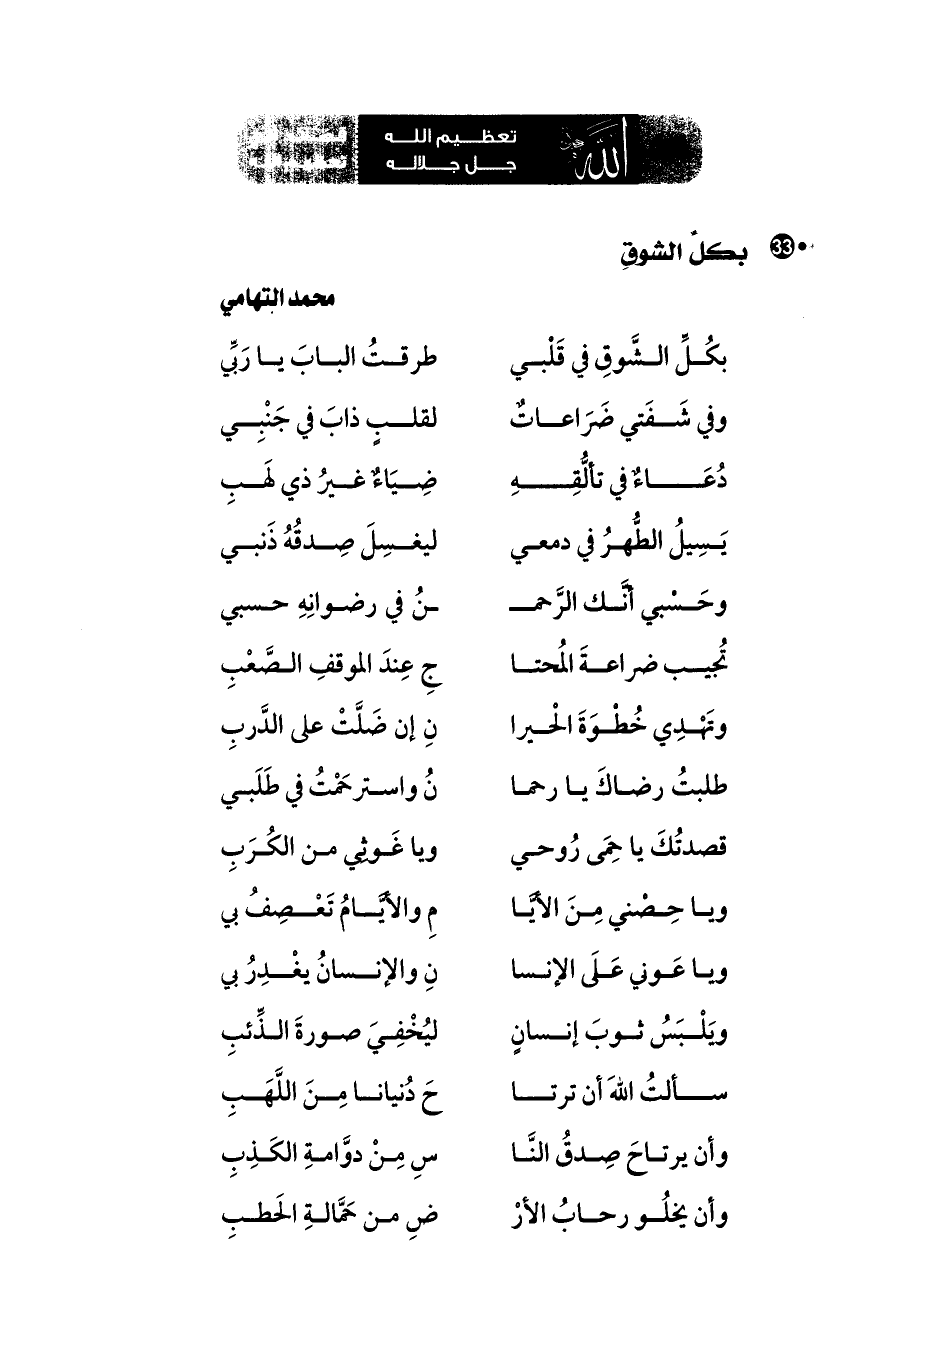 تعظيم الله
جل جلاله
الله
33 بكلّ الشوقِ
محمد التهامي
بكُلِّ الشَّوقِ في قَلْبي طرقتُ البابَ يا رَبِّي
وفي شَفَتي ضَرَاعاتٌ لقلبٍ ذابَ في جَنْبِي
دُعَاءٌ في تألُّقِهِ ضِيَاءٌ غيرُ ذي لَهبِ
يَسِيلُ الطُّهرُ في دمعي ليغسِلَ صِدقُهُ ذَنبي
وحَسْبي أنَّك الرَّحمـ ـنُ في رضوانِهِ حسبي
تُجيب ضراعةَ المُحتا جِ عِندَ الموقفِ الصَّعْبِ
وتَهْدِي خُطْوَةَ الْحيرا نِ إن ضَلَّتْ على الدَّربِ
طلبتُ رضاكَ يا رحما نُ واسترحَمْتُ في طَلَبي
قصدتُكَ يا حِمَى رُوحي ويا غَوثِي من الكُرَبِ
ويا حِصْني مِنَ الأيَّا مِ والأيَّامُ تَعْصِفُ بي
ويا عَوني عَلَى الإنسا نِ والإنسانُ يغْدِرُ بي
ويَلْبَسُ ثوبَ إنسانٍ ليُخْفِيَ صورةَ الذِّئبِ
سألتُ اللهَ أن ترتا حَ دُنيانا مِنَ اللَّهَبِ
وأن يرتاحَ صِدقُ النَّا سِ مِنْ دوَّامةِ الكَذِبِ
وأن يخلُو رحابُ الأرْ ضِ من حَمَّالةِ الحَطبِ